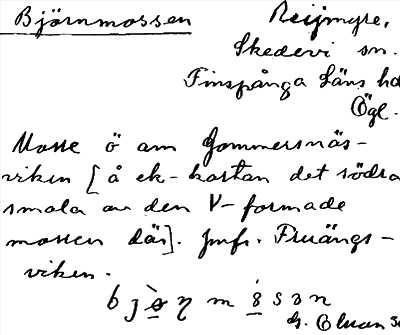 Björnmossen
Reijmyre,
Skedevi sn.
Finspånga Läns hd
Ögl.
Mosse ö om Gommersnäs-
viken [å ek-kartan det södra
smala av den V-formade
mossen där]. Jmfr. Fruängs-
viken.